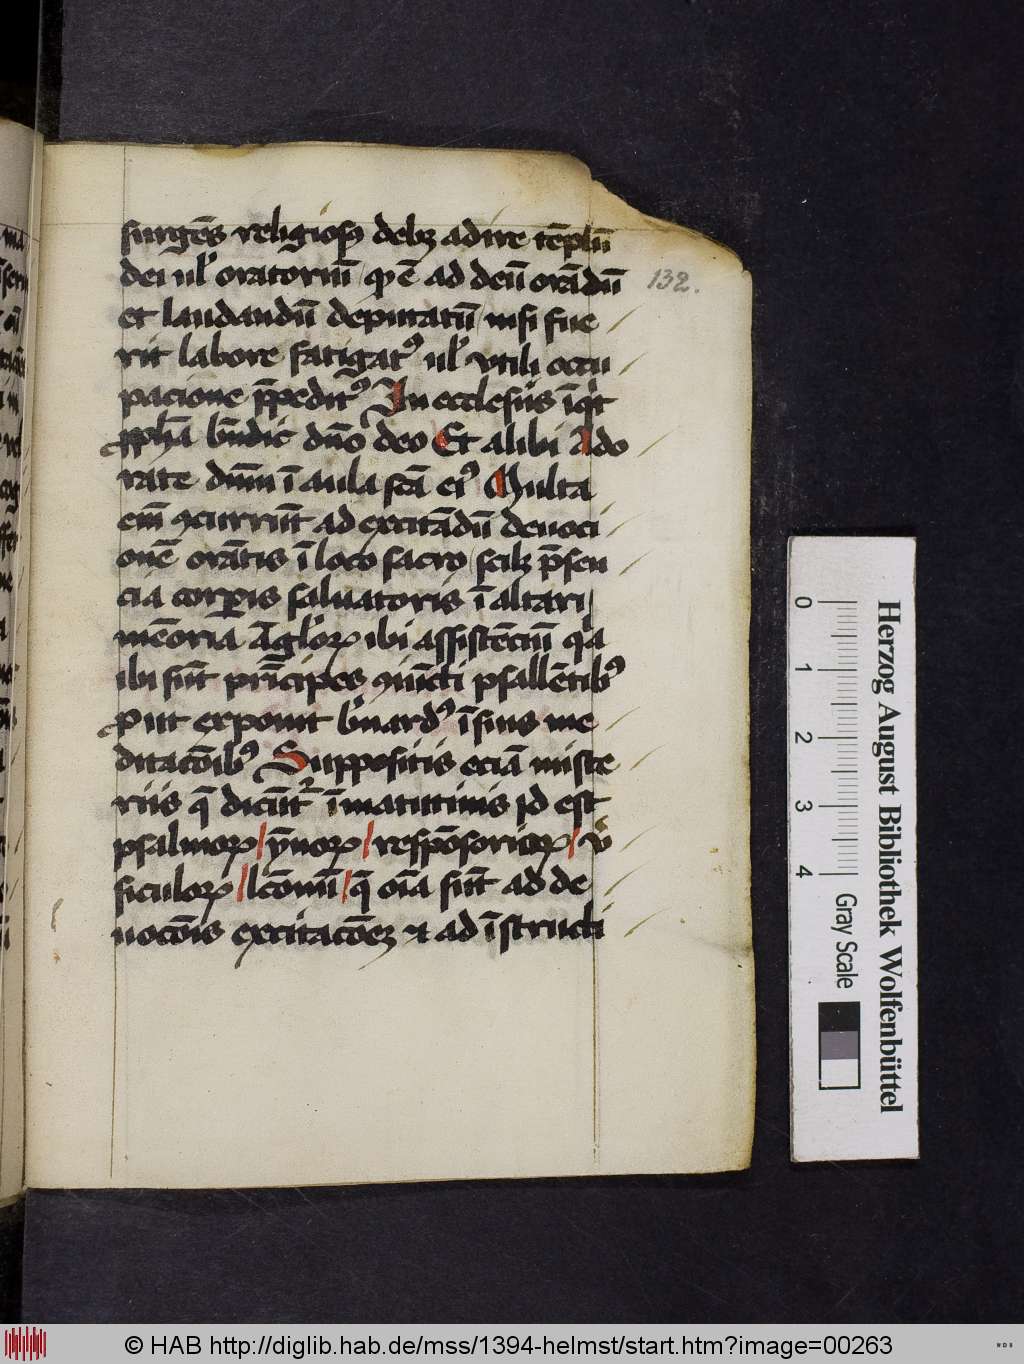 surgēs religiosꝰ debꝫ adire tēplū
dei ul' oratoriū / qꝫ ē ad deū orādū
et laudandū deputatū / nisi fue
rit labore fatigatꝰ ul' vtili occu
pacione p̄peditꝰ In ecclesiis īq̇t
ꝓph̄a b̄ndic dn̄o deo Et alibi Ado
rate dn̄m ī aula sc̄a eiꝰ Multa
em̄ ꝯcurrūt ad excitādū deuoci
onē orātis ī loco sacro / scilꝫ p̄sen
cia corꝑis saluatoris ī altari /
mēoria āglorꝝ ibi assistēciū q̇a
ibi sūt prīcipes ꝯiūcti psallētibꝰ
ꝓut exponit b̄nardꝰ ī suis me
ditacōibꝰ Suppositis eciā miste
riis q̄ dicūtᷣ ī matutinis id est
psalmorꝝ / ȳnorꝝ / respōsoriorꝝ / v̇
siculorꝝ / lcōnū / q̄ oīa sūt ad de
uocōis excitacōeꝫ ⁊ ad īstructi
132.
0 1 2 3 4
Herzog August Bibliothek Wolfenbüttel
Gray Scale
© HAB http://diglib.hab.de/mss/1394-helmst/start.htm?image=00263